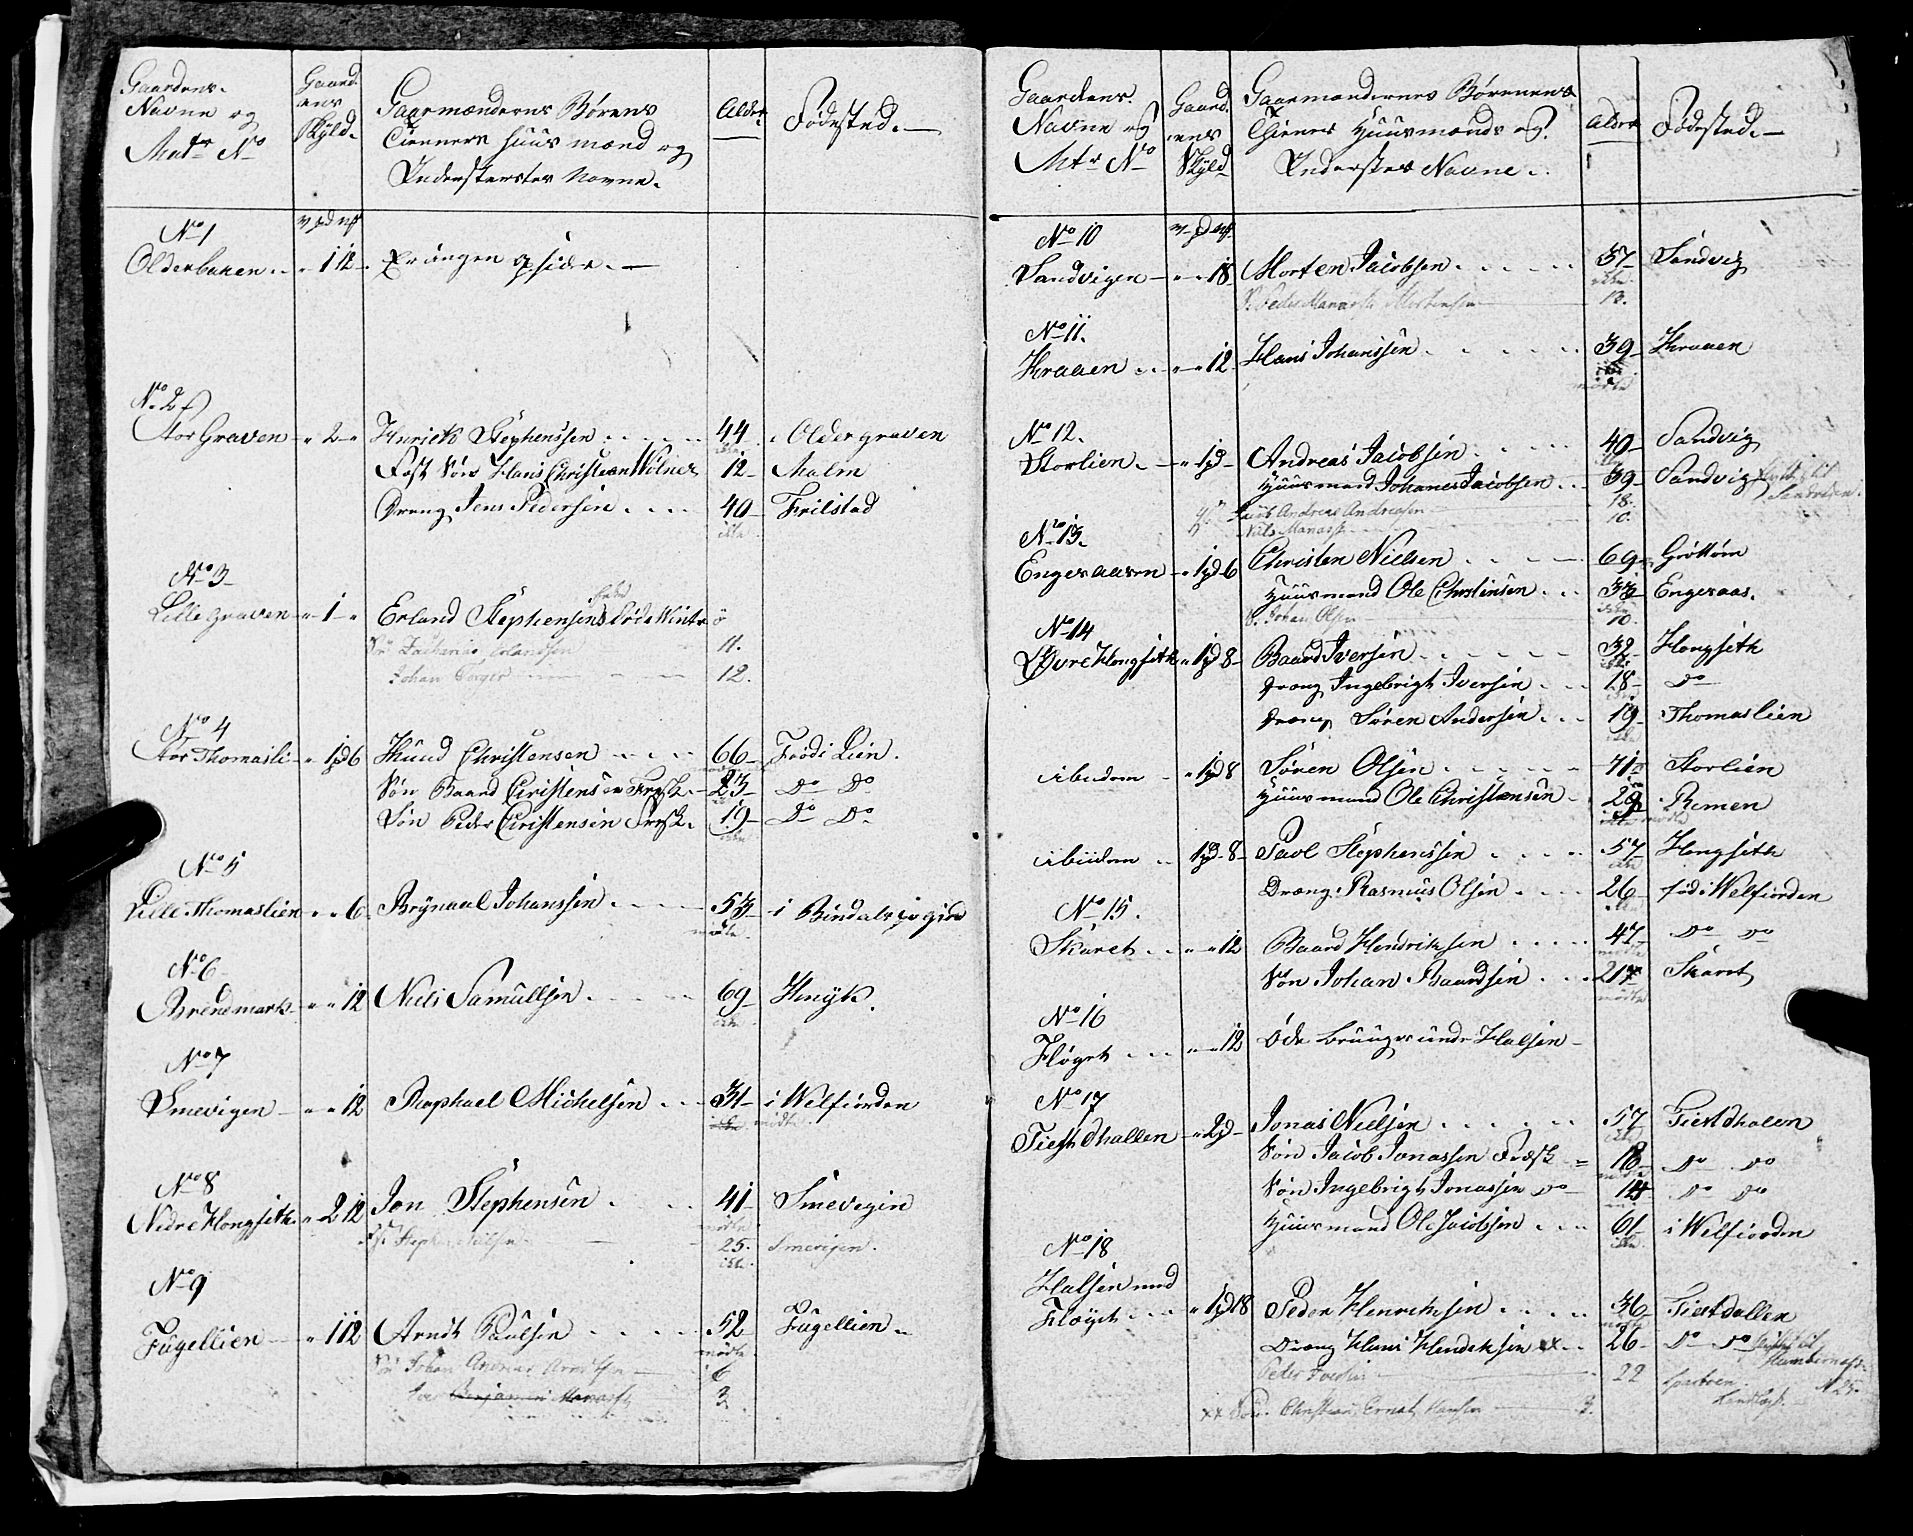 Gaardens
Navne og
Matr No
Gaard
ens
Skyld.
Gaarmændens Børens
Tienners Huusmænd og
Indersterster Navne.
Alder
Fødested.
No 1
Olderbaken 1 12 Er ingen opsider.
No 2
Stor Graven 2 Henrick Stephenssen 44 Oldergraven
Fost Søn Hans Christian Wolner 12 Malm
Dreng Jens Pedersen 40 Frilstad
ikke
No 3
Lille Graven 1 Erland Stephensen Føde Wintr
Sør Zacharias Erlandsen 11.
Johan 12.
No 4
Stor Thomasli 1 pd 6 Knud Christensen 66 Fødi Lien.
Søn Baard Christensen Frisk 23 Do Do
Søn Peder Christensen Frisk. 19 Do Do
ikke
No 5
Lille Thomaslien 6 Brynaal Johanssen 53 i Bindals
mødte.
No 6
Brendemark 12 Niels Samullsen 69 Hmyk.
ikke
No 7
Smevigen 12 Raphael Michelsen 31 i Welfiorden
ikke mødte.
No 8
Nedre Hongseth 2 12 Jon Stephensen 41 Smevigen
mødte
25. Smevigen.
ikke
No 9
Fugellien 1 12 Arndt Paulsen 52 Fugellien
mødte.
Sør Johan Andreas Arndtsen 6
Benjamin 3
Gaardens
Navne og
Mtr No
Gaard
ens
Skyld
Gaarmændenes Børenens
Tiener Huusmænds og
Inderster Navne.
Alder
Fødested.
No 10
Sandvigen 18 Morten Jacobsen 37 Sandvig
ikke
S. Peder Mortensen 13.
No 11.
Kraaen 12 Hans Johanssen 39 Kraaen
mødte
No 12.
Storlien 1 pd Andreas Jacobsen 40 Sandvig
Huusmand Johanes Jacobsen 39 Sandvig flyttet til
Sandvigen.
Andreas Andreasen 18.
Nils 10.
No 13.
Engesaasen 1 pd 6 Christen Nielsen 69 Grøttøm
Huusmand Ole Christensen 33 Engesaas.
S. Johan Olsen 10.
No 14
Øvre Hongseth 1 pd 8 Baard Iversen 32 Hongseth
Dreng Ingebrigt Iversen 18 Do
Dreng Søren Andersen 19 Thomaslien
ibidem 1 pd 8 Søren Olsen 41 Storlien
Huusmand Ole Christensen Remen
ikke mødte
ibidem 1 pd 8 Paol Stephenssen 57 Hongseth
Dreng Rasmus Olsen 26 født i Welfiorden
No 15.
Skaret 12 Baard Hendriksen 47 Do Do
mødte
Søn Johan Baardsen 21 Skaret
mødte
No 16
Fløget 12 Øde bruuges unde Halsen
No 17
Tiestdhallen 2 pd Jonas Nielsen 57 Tiestdhalen
Søn Jacob Jonassen Frisk 18 Do Do
Søn Ingebrigt Jonassen Do 14 Do Do
Huusmand Ole Jacobsen 61 i Welfiorden
No 18
Halsen med
Fløget 1 pd 18 Peder Henriksen 36 Tiestdallen
mødte
Dreng Hans Hendeksen xx 26 Do Do flyttet til
Peder 22
No 25.
xx Søn. Christian Ernst Hansen